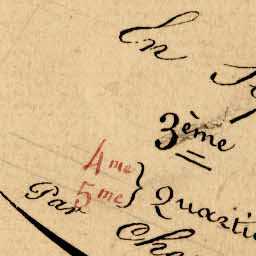 En
3ème
4me
5me } Quartie
Par